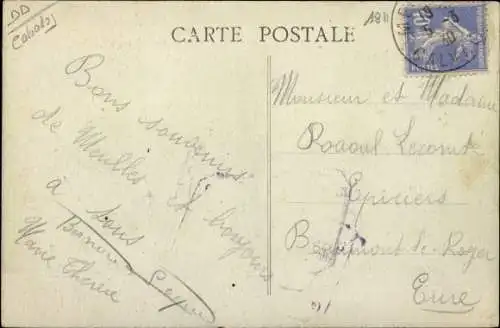 (Calvados)
CARTE POSTALE
Bons souvenirs
de Meulles et bonjour
à tous
Marie Thérèse
Monsieur et Madame
Raoul Lecomte
Epiciers
Beaumont-le-Roger
Eure